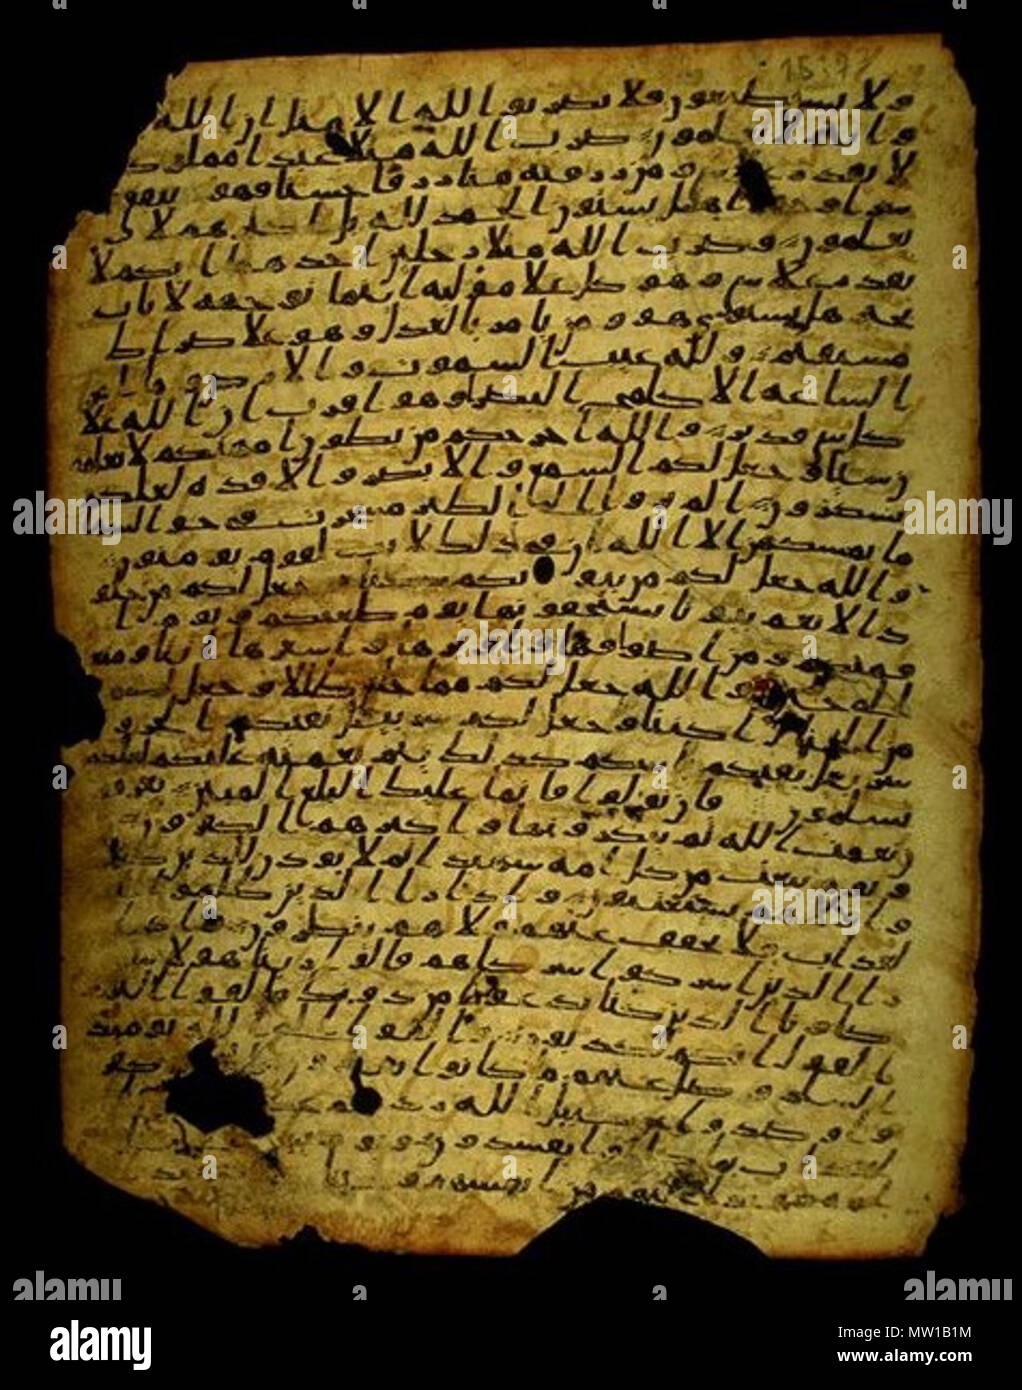 ولا يستطيعون فلا تضربوا لله الامثل ان الله
وانتم لا تعلمون ضرب الله مثلا عبدا مملوكا
لا يقدر على ومن رزقنه منا رزقا حسنا فهو ينفق
سرا وجهرا هل يستون الحمد لله بل اكثرهم لا
يعلمون وضرب الله مثلا رجلين احدهما ابكم لا
يقدر على شى وهو كل على موليه اينما يوجهه لا يات
بخير هل يستوى هو ومن يامر بالعدل وهو على صرط
مستقيم ولله غيب السموت والارض وما امر
الساعة الا كلمح البصر او هو اقرب ان الله على
كل شى قدير والله اخرجكم من بطون امهتكم لا تعلمو
ن شيا وجعل لكم السمع والابصر والافدة لعلكم
تشكرون الم يروا الى الطير مسخرت فى جو السما
ما يمسكهن الا الله ان فى ذلك لايت لقوم يومنون
والله جعل لكم من بيوتكم سكنا وجعل لكم من جلو
د الانعم بيوتا تستخفونها يوم ظعنكم ويوم ا
قمتكم ومن اصوافها واوبرها واشعرها اثثا ومتعا
الى حين والله جعل لكم مما خلق ظللا وجعل لكم
من الجبل اكننا وجعل لكم سربيل تقيكم الحر و
سربيل تقيكم باسكم كذلك يتم نعمته عليكم لعلكم
تسلمون فان تولوا فانما عليك البلغ المبين يعرفو
ن نعمت الله ثم ينكرونها واكثرهم الكفرون
ويوم نبعث من كل امة شهيدا ثم لا يوذن للذين كفروا
ولا هم يستعتبون واذا راا الذين ظلموا ا
لعذاب فلا يخفف عنهم ولا هم ينظرون واذا
راا الذين اشركوا شركاهم قالوا ربنا هولا
شركاونا الذين كنا ندعوا من دونك فالقوا اليهم
القول انكم لكذبون والقوا الى الله يومئذ
السلم وضل عنهم ما كانوا يفترون الذين
كفروا وصدوا عن سبيل الله زدنهم
العذاب بما كانوا يفسدون ويوم
من انفسهم
alamy
alamy stock photo
MW1B1M
www.alamy.com